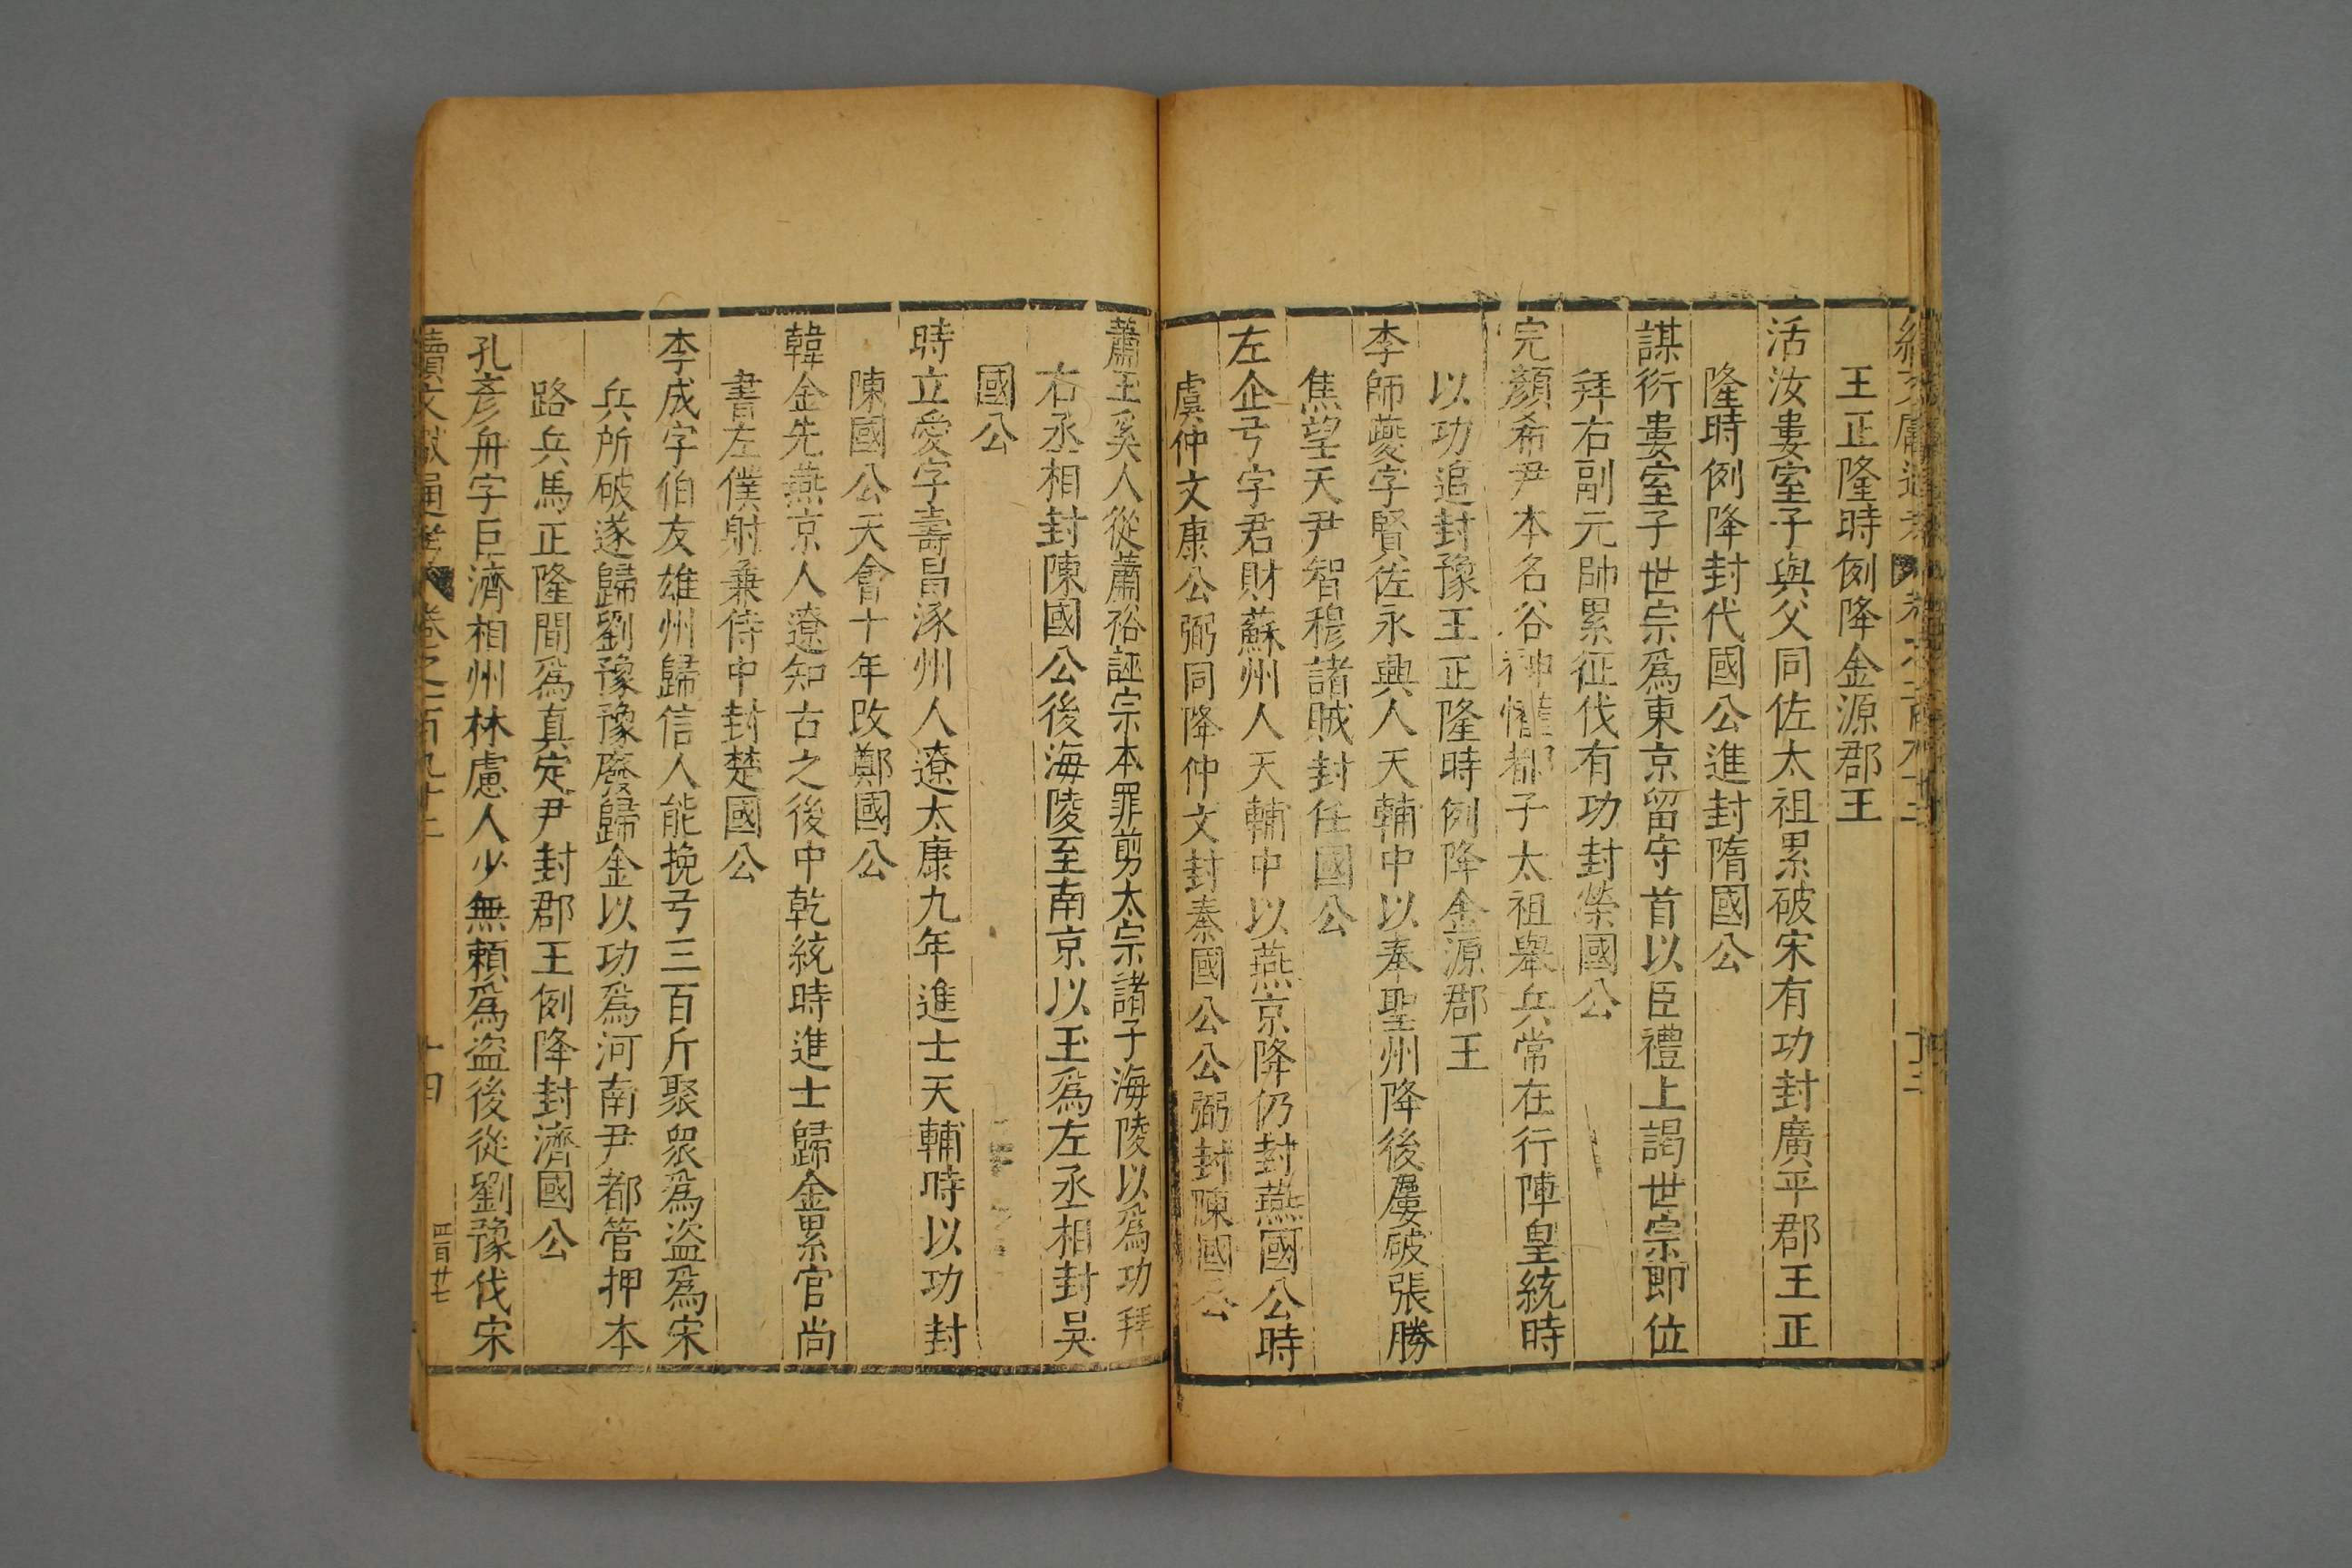 王正隆時例降金源郡王
活汝婁室子與父同佐太祖累破宋有功封廣平郡王正
隆時例降封代國公進封隋國公
謀衍婁室子世宗爲東京留守首以臣禮上謁世宗即位
拜右副元帥累征伐有功封榮國公
完顏希尹本名谷神懽都子太祖舉兵常在行陣皇統時
以功追封豫王正隆時例降金源郡王
李師夔字賢佐永興人天輔中以奉聖州降後屢破張勝
焦望天尹智穆諸賊封任國公
左企弓字君財蘇州人天輔中以燕京降仍封燕國公時
虞仲文康公弼同降仲文封秦國公公弼封陳國公
蕭玉奚人從蕭裕誣宗本罪剪太宗諸子海陵以爲功拜
右丞相封陳國公後海陵至南京以玉爲左丞相封吳
國公
時立愛字壽昌涿州人遼太康九年進士天輔時以功封
陳國公天會十年改鄭國公
韓企先燕京人遼知古之後中乾統時進士歸金累官尚
書左僕射兼侍中封楚國公
李成字伯友雄州歸信人能挽弓三百斤聚衆爲盜爲宋
兵所破遂歸劉豫豫廢歸金以功爲河南尹都管押本
路兵馬正隆間爲真定尹封郡王例降封濟國公
孔彥舟字巨濟相州林慮人少無賴爲盜後從劉豫伐宋
續文獻通考 卷之一百九十三 十四 四百廿七